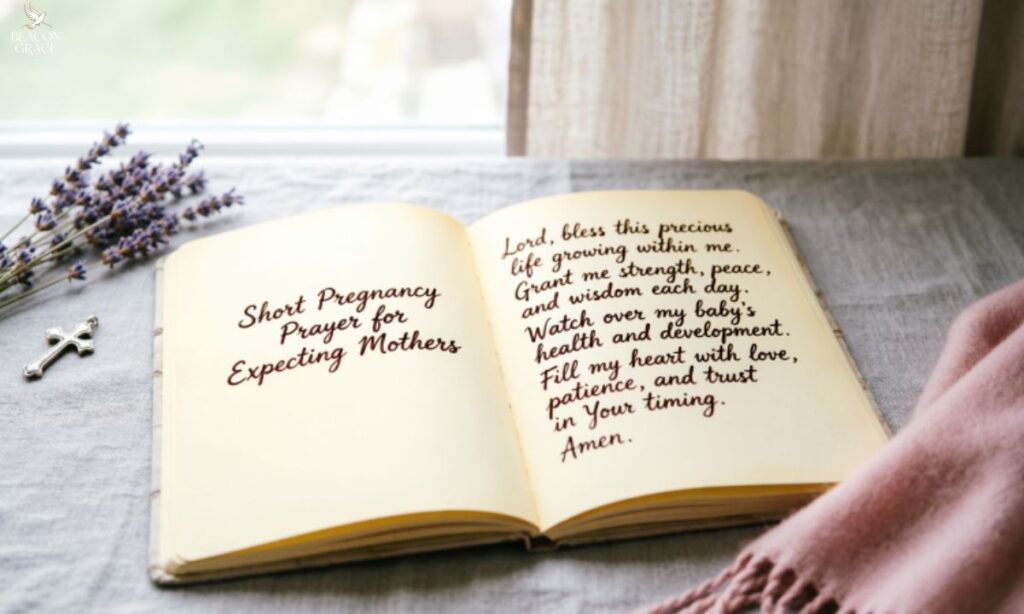 BEACON
GRACE
Short Pregnancy
Prayer for
Expecting Mothers
Lord, bless this precious
life growing within me.
Grant me strength, peace,
and wisdom each day.
Watch over my baby's
health and development.
Fill my heart with love,
patience, and trust
in Your timing.
Amen.